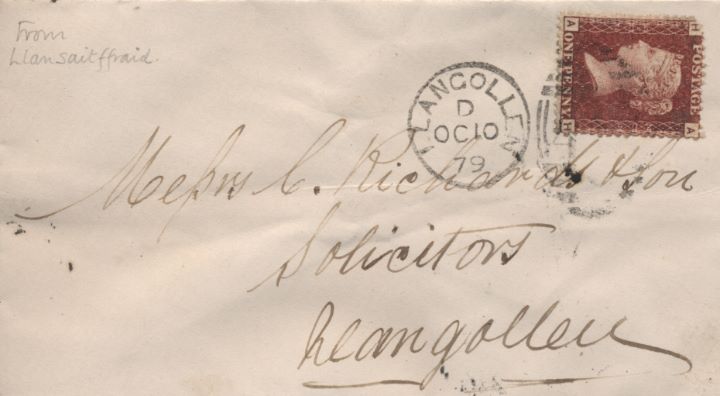 From
Llansaitffraid.
A H
ONE PENNY
POSTAGE
H A
LLANGOLLEN
D
OC 10
79
Messrs C. Richards & Son
Solicitors
Llangollen